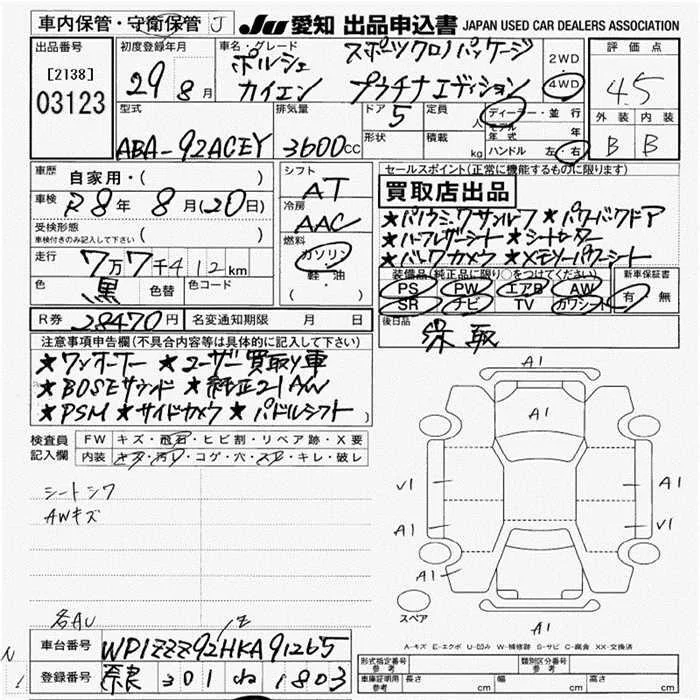 車内保管・守衛保管 J
JU 愛知 出品申込書 JAPAN USED CAR DEALERS ASSOCIATION
出品番号 [2138] 03123
初度登録年月 29 8月
車名・グレード ポルシェ スポーツクロノパッケージ
カイエン プラチナエディション
2WD
4WD
評価点 4.5
外装 内装
B B
型式 ABA-92ACEY
排気量 3600cc
ドア 5
形状
定員 人
積載 kg
ディーラー・並行
モデル年式 年
ハンドル 左・右
車歴 自家用・( )
車検 R8年 8月(20日)
受検形態
車検付きのみ記入して下さい ( )
走行 7万7千412km
色 黒 色替 色コード
シフト AT
冷房 AAC
燃料 ガソリン
軽・油
( )
セールスポイント(正常に機能するものに限ります)
買取店出品
★パノラミックサンルーフ ★パワーバックドア
★ハーフレザーシート ★シートヒーター
★バックカメラ ★メモリーパワーシート
装備品(純正品に限り○をつけてください)
PS PW エアB AW
SR ナビ TV カワシート
新車保証書
有・無
R券 28470円 名変通知期限 月 日
後日品 保 取
注意事項申告欄(不具合内容等は具体的に記入して下さい)
★ワンオーナー ★ユーザー買取り車
★BOSEサウンド ★純正21AW
★PSM ★サイドカメラ ★パドルシフト
検査員記入欄
FW キズ・飛石・ヒビ割・リペア跡・X要
内装 キズ・汚レ・コゲ・穴・スレ・キレ・破レ
シートシワ
AWキズ
各AU
A1
A1
V1
A1
A1
V1
A1
A1
スペア
A-キズ E-エクボ U-凹み W-補修跡 S-サビ C-腐食 XX-交換済
車台番号 WP1ZZZ92HKA91265
登録番号 奈良 301 ね 1803
型式指定番号 参考
類別区分番号 参考
車庫証明用 参考 長さ cm 幅 cm 高さ cm